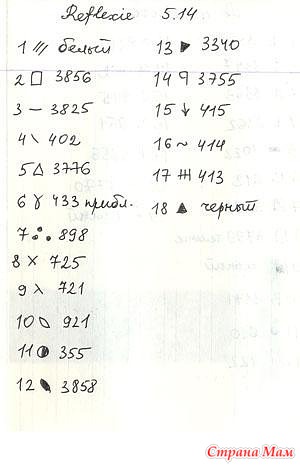 Reflexie 5.14
1 /// белый
2 □ 3856
3 — 3825
4 \ 402
5 △ 3776
6 γ 433 прибл.
7 ∴ 898
8 × 725
9 λ 721
10 921
11 ◑ 355
12 3858
13 ▶ 3340
14 3755
15 ↓ 415
16 ~ 414
17 413
18 ▲ черный
Страна Мам